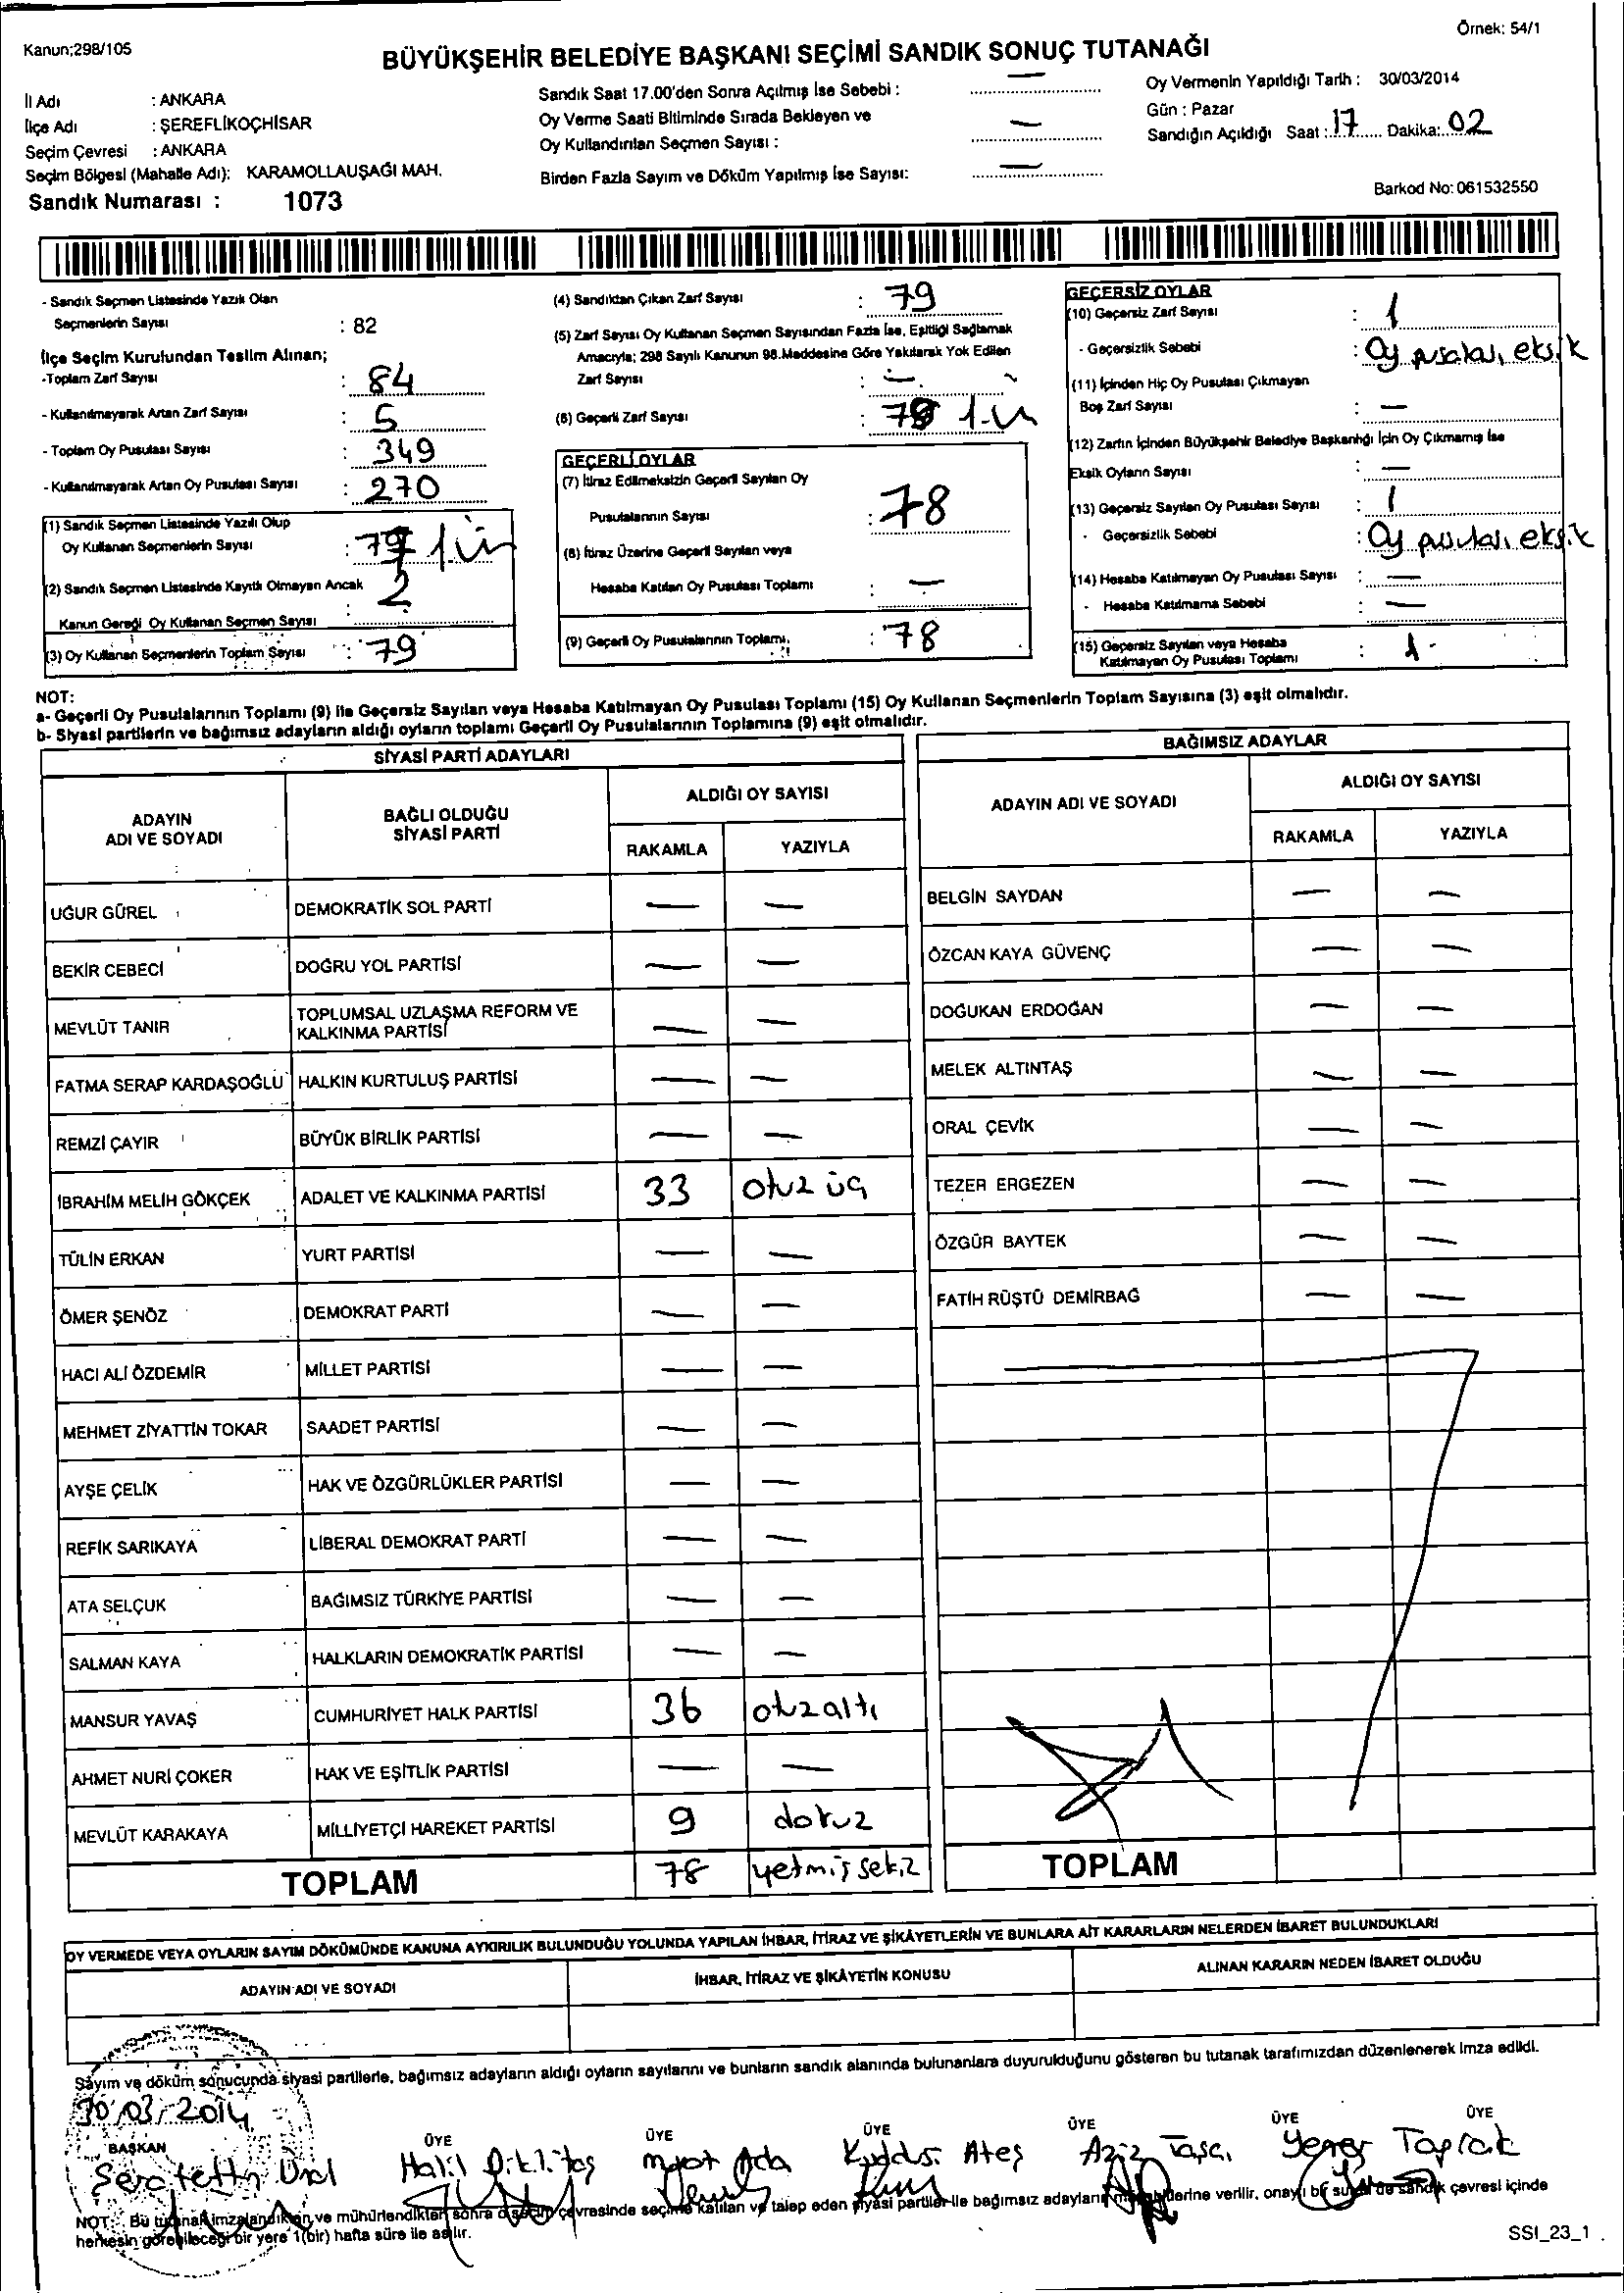 Kanun;298/105
Örnek: 54/1
BÜYÜKŞEHİR BELEDİYE BAŞKANI SEÇİMİ SANDIK SONUÇ TUTANAĞI
İl Adı : ANKARA
İlçe Adı : ŞEREFLİKOÇHİSAR
Seçim Çevresi : ANKARA
Seçim Bölgesi (Mahalle Adı): KARAMOLLAUŞAĞI MAH.
Sandık Numarası : 1073
Sandık Saat 17.00'den Sonra Açılmış İse Sebebi : —
Oy Verme Saati Bitiminde Sırada Bekleyen ve
Oy Kullandırılan Seçmen Sayısı : —
Birden Fazla Sayım ve Döküm Yapılmış İse Sayısı: —
Oy Vermenin Yapıldığı Tarih : 30/03/2014
Gün : Pazar
Sandığın Açıldığı Saat : 17 Dakika: 02
Barkod No: 061532550
- Sandık Seçmen Listesinde Yazılı Olan
Seçmenlerin Sayısı : 82
İlçe Seçim Kurulundan Teslim Alınan;
-Toplam Zarf Sayısı : 84
- Kullanılmayarak Artan Zarf Sayısı : 5
- Toplam Oy Pusulası Sayısı : 349
- Kullanılmayarak Artan Oy Pusulası Sayısı : 270
(1) Sandık Seçmen Listesinde Yazılı Olup
Oy Kullanan Seçmenlerin Sayısı : 77
(2) Sandık Seçmen Listesinde Kayıtlı Olmayan Ancak
Kanun Gereği Oy Kullanan Seçmen Sayısı : 2
(3) Oy Kullanan Seçmenlerin Toplam Sayısı : 79
(4) Sandıktan Çıkan Zarf Sayısı : 79
(5) Zarf Sayısı Oy Kullanan Seçmen Sayısından Fazla İse, Eşitliği Sağlamak
Amacıyla; 298 Sayılı Kanunun 98.Maddesine Göre Yakılarak Yok Edilen
Zarf Sayısı : —
(6) Geçerli Zarf Sayısı : 78
GEÇERLİ OYLAR
(7) İtiraz Edilmeksizin Geçerli Sayılan Oy
Pusulalarının Sayısı : 78
(8) İtiraz Üzerine Geçerli Sayılan veya
Hesaba Katılan Oy Pusulası Toplamı : —
(9) Geçerli Oy Pusulalarının Toplamı, : 78
GEÇERSİZ OYLAR
(10) Geçersiz Zarf Sayısı : 1
- Geçersizlik Sebebi : Oy pusulası eksik
(11) İçinden Hiç Oy Pusulası Çıkmayan
Boş Zarf Sayısı : —
(12) Zarfın İçinden Büyükşehir Belediye Başkanlığı İçin Oy Çıkmamış İse
Eksik Oyların Sayısı : —
(13) Geçersiz Sayılan Oy Pusulası Sayısı : 1
- Geçersizlik Sebebi : Oy pusulası eksik
(14) Hesaba Katılmayan Oy Pusulası Sayısı : —
- Hesaba Katılmama Sebebi : —
(15) Geçersiz Sayılan veya Hesaba
Katılmayan Oy Pusulası Toplamı : 1
NOT:
a- Geçerli Oy Pusulalarının Toplamı (9) ile Geçersiz Sayılan veya Hesaba Katılmayan Oy Pusulası Toplamı (15) Oy Kullanan Seçmenlerin Toplam Sayısına (3) eşit olmalıdır.
b- Siyasi partilerin ve bağımsız adayların aldığı oyların toplamı Geçerli Oy Pusulalarının Toplamına (9) eşit olmalıdır.
SİYASİ PARTİ ADAYLARI
ADAYIN
ADI VE SOYADI
BAĞLI OLDUĞU
SİYASİ PARTİ
ALDIĞI OY SAYISI
RAKAMLA YAZIYLA
UĞUR GÜREL DEMOKRATİK SOL PARTİ — —
BEKİR CEBECİ DOĞRU YOL PARTİSİ — —
MEVLÜT TANIR TOPLUMSAL UZLAŞMA REFORM VE
KALKINMA PARTİSİ — —
FATMA SERAP KARDAŞOĞLU HALKIN KURTULUŞ PARTİSİ — —
REMZİ ÇAYIR BÜYÜK BİRLİK PARTİSİ — —
İBRAHİM MELİH GÖKÇEK ADALET VE KALKINMA PARTİSİ 33 otuz üç
TÜLİN ERKAN YURT PARTİSİ — —
ÖMER ŞENÖZ DEMOKRAT PARTİ — —
HACI ALİ ÖZDEMİR MİLLET PARTİSİ — —
MEHMET ZİYATTİN TOKAR SAADET PARTİSİ — —
AYŞE ÇELİK HAK VE ÖZGÜRLÜKLER PARTİSİ — —
REFİK SARIKAYA LİBERAL DEMOKRAT PARTİ — —
ATA SELÇUK BAĞIMSIZ TÜRKİYE PARTİSİ — —
SALMAN KAYA HALKLARIN DEMOKRATİK PARTİSİ — —
MANSUR YAVAŞ CUMHURİYET HALK PARTİSİ 36 otuzaltı
AHMET NURİ ÇOKER HAK VE EŞİTLİK PARTİSİ — —
MEVLÜT KARAKAYA MİLLİYETÇİ HAREKET PARTİSİ 9 dokuz
TOPLAM 78 yetmiş sekiz
BAĞIMSIZ ADAYLAR
ADAYIN ADI VE SOYADI
ALDIĞI OY SAYISI
RAKAMLA YAZIYLA
BELGİN SAYDAN — —
ÖZCAN KAYA GÜVENÇ — —
DOĞUKAN ERDOĞAN — —
MELEK ALTINTAŞ — —
ORAL ÇEVİK — —
TEZER ERGEZEN — —
ÖZGÜR BAYTEK — —
FATİH RÜŞTÜ DEMİRBAĞ — —
TOPLAM
OY VERMEDE VEYA OYLARIN SAYIM DÖKÜMÜNDE KANUNA AYKIRILIK BULUNDUĞU YOLUNDA YAPILAN İHBAR, İTİRAZ VE ŞİKÂYETLERİN VE BUNLARA AİT KARARLARIN NELERDEN İBARET BULUNDUKLARI
ADAYIN ADI VE SOYADI
İHBAR, İTİRAZ VE ŞİKÂYETİN KONUSU
ALINAN KARARIN NEDEN İBARET OLDUĞU
Sayım ve döküm sonucunda siyasi partilerle, bağımsız adayların aldığı oyların sayılarını ve bunların sandık alanında bulunanlara duyurulduğunu gösteren bu tutanak tarafımızdan düzenlenerek imza edildi.
30/03/2014
BAŞKAN ÜYE ÜYE ÜYE ÜYE ÜYE ÜYE
Halil Dikilitaş Ada Ateş Aziz Taşçı Yener Toprak
NOT: Bu tutanak imzalandıktan ve mühürlendikten sonra o seçim çevresinde seçime katılan ve talep eden siyasi partiler ile bağımsız adayların verilir, onaylı bir sureti de sandık çevresi içinde
herkesin görebileceği bir yere 1(bir) hafta süre ile asılır.
SSI_23_1